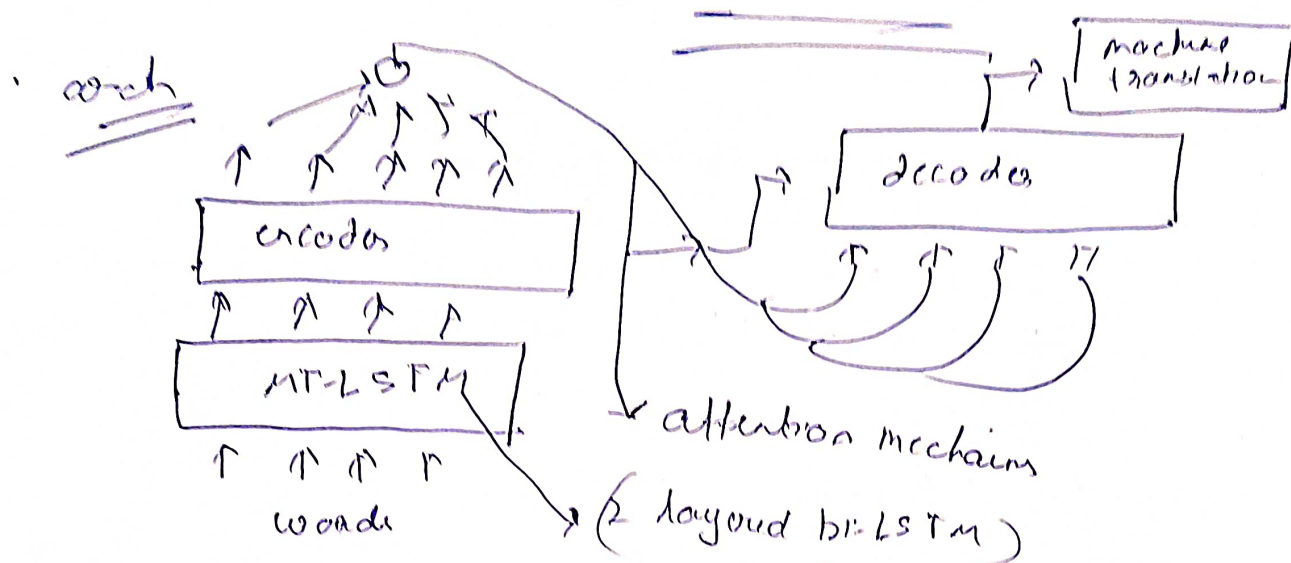 machine
translation
decoder
encoder
MT-LSTM
attention mechaim
words
(2 layoud bi-LSTM)